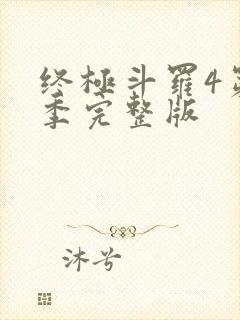 终極斗羅4第
季完整版
沐兮